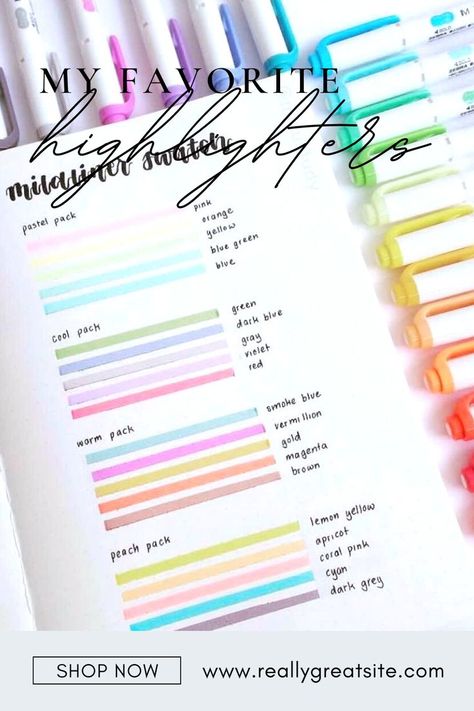 MY FAVORITE
highlighters
mildliner swatches
pastel pack
pink
orange
yellow
blue green
blue
cool pack
green
dark blue
gray
violet
red
warm pack
smoke blue
vermillion
gold
magenta
brown
peach pack
lemon yellow
apricot
coral pink
cyan
dark grey
SHOP NOW
www.reallygreatsite.com